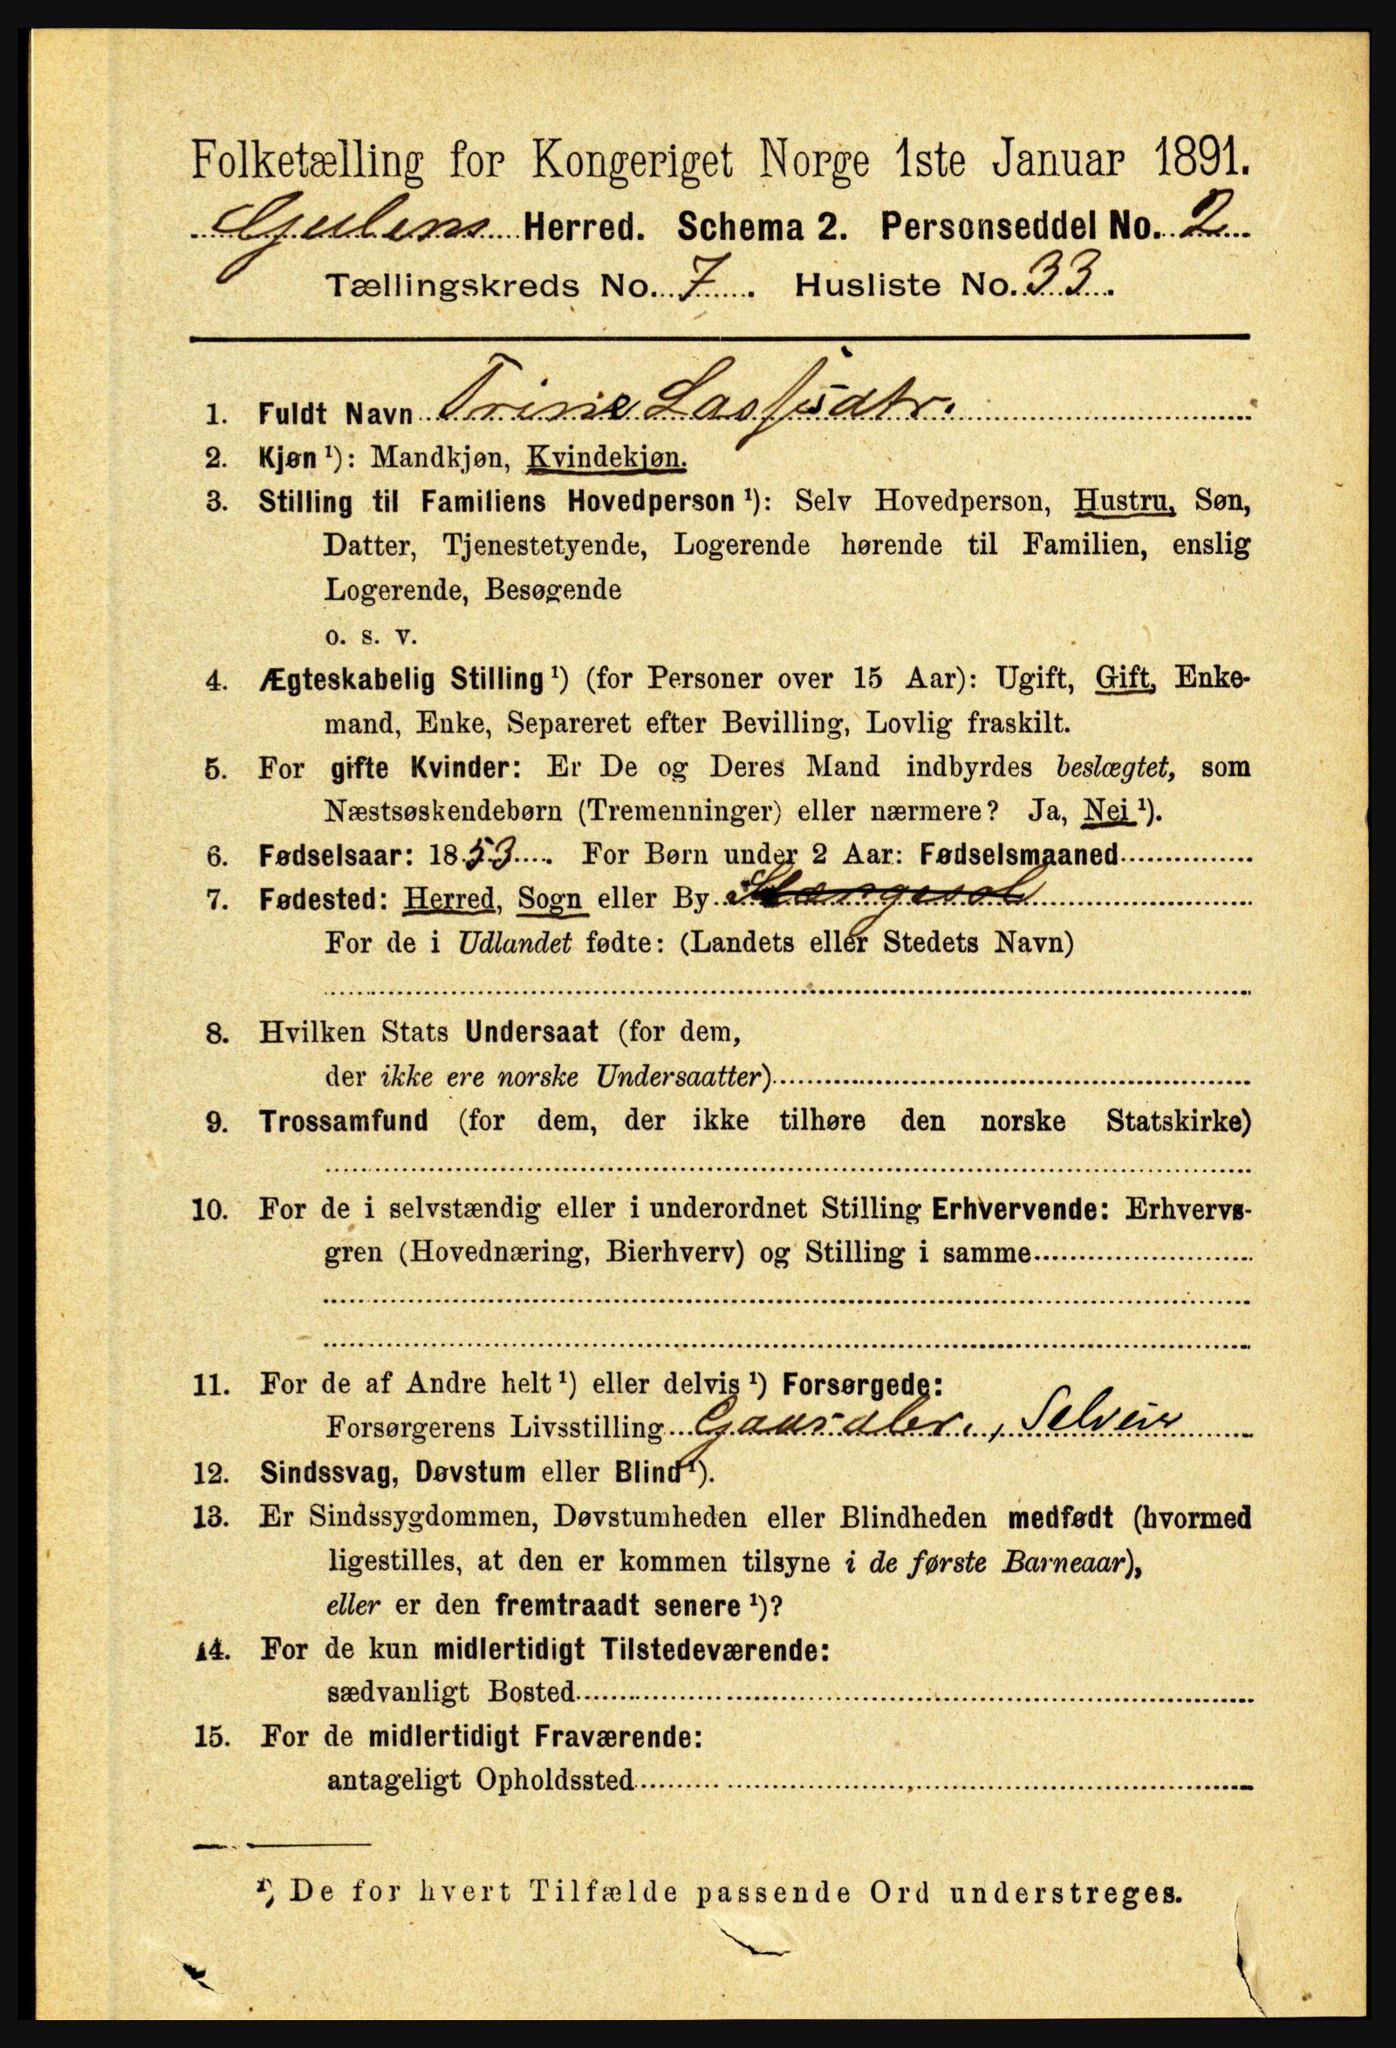 Folketælling for Kongeriget Norge 1ste Januar 1891.
Gulens Herred. Schema 2. Personseddel No. 2
Tællingskreds No. 7. Husliste No. 33.
1. Fuldt Navn Trine Lassesdtr.
2. Kjøn ¹): Mandkjøn, Kvindekjøn.
3. Stilling til Familiens Hovedperson ¹): Selv Hovedperson, Hustru, Søn,
Datter, Tjenestetyende, Logerende hørende til Familien, enslig
Logerende, Besøgende
o. s. v.
4. Ægteskabelig Stilling ¹) (for Personer over 15 Aar): Ugift, Gift, Enke-
mand, Enke, Separeret efter Bevilling, Lovlig fraskilt.
5. For gifte Kvinder: Er De og Deres Mand indbyrdes beslægtet, som
Næstsøskendebørn (Tremenninger) eller nærmere? Ja, Nei ¹).
6. Fødselsaar: 1853. For Børn under 2 Aar: Fødselsmaaned
7. Fødested: Herred, Sogn eller By
For de i Udlandet fødte: (Landets eller Stedets Navn)
8. Hvilken Stats Undersaat (for dem,
der ikke ere norske Undersaatter)
9. Trossamfund (for dem, der ikke tilhøre den norske Statskirke)
10. For de i selvstændig eller i underordnet Stilling Erhvervende: Erhvervs-
gren (Hovednæring, Bierhverv) og Stilling i samme
11. For de af Andre helt ¹) eller delvis ¹) Forsørgede:
Forsørgerens Livsstilling Gaardbr., Selveier
12. Sindssvag, Døvstum eller Blind ¹).
13. Er Sindssygdommen, Døvstumheden eller Blindheden medfødt (hvormed
ligestilles, at den er kommen tilsyne i de første Barneaar),
eller er den fremtraadt senere ¹)?
14. For de kun midlertidigt Tilstedeværende:
sædvanligt Bosted
15. For de midlertidigt Fraværende:
antageligt Opholdssted
¹) De for hvert Tilfælde passende Ord understreges.